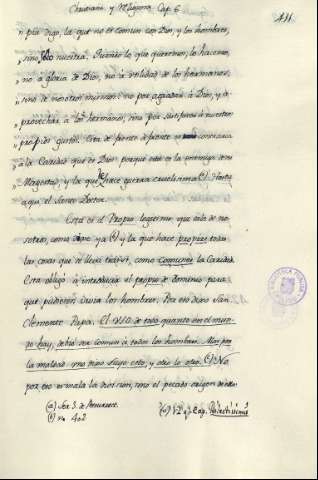 Chravari y Mayans Cap. 6
411.
pia digo, la que no es comun con Dios, y los hombres,
sino solo nuestra. Quanto lo que queremos, lo hacemos,
no a gloria de Dios, no à utilidad de los hermanos,
sino de nosotros mismos: no por agradar à Dios, y a-
provechar a los hermanos, sino por satisfacer à nuestros
propios gustos. Esta de frente à frente es contraria
a la Caridad que es Dios: porque esta es la enemiga de su
Magestad, y la que le hace guerra cruelisima (a). Hasta
aqui el Santo Doctor.
Esta es el Propia legitimo, que sale de no-
sotros, como dije ya (b) y la que hace propias todas
las cosas que se lleva tras sí, como comunes la Caridad.
Esta obligó a introducir el propio de dominio para
que pudiesen vivir los hombres. Por eso dijo San
Clemente Papa. El uso de todo quanto en el mun-
do hay, debia ser comun à todos los hombres. Mas por
la maldad uno dijo suyo esto, y otro lo otro. (c) No
por eso es mala la division, sino el pecado origen de ella.
(a) Ser. 3. de Resurrect.
(b) nº 402
(c) 12. q. 1. Cap. Dilectissimis